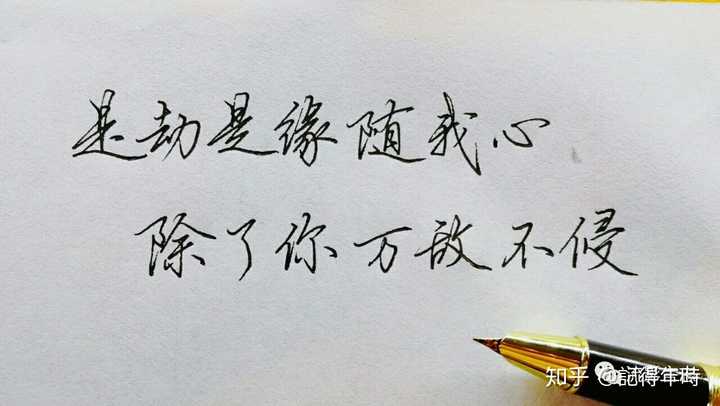 是劫是缘随我心
除了你万敌不侵
知乎 @記得年時